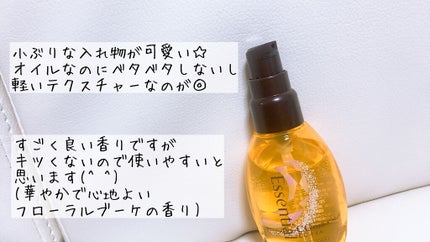 小ぶりな入れ物が可愛い☆
オイルなのにベタベタしないし
軽いテクスチャーなのが◎
すごく良い香りですが
キツくないので使いやすいと
思います(^ ^)
(華やかで心地よい
フローラルブーケの香り)
Essential